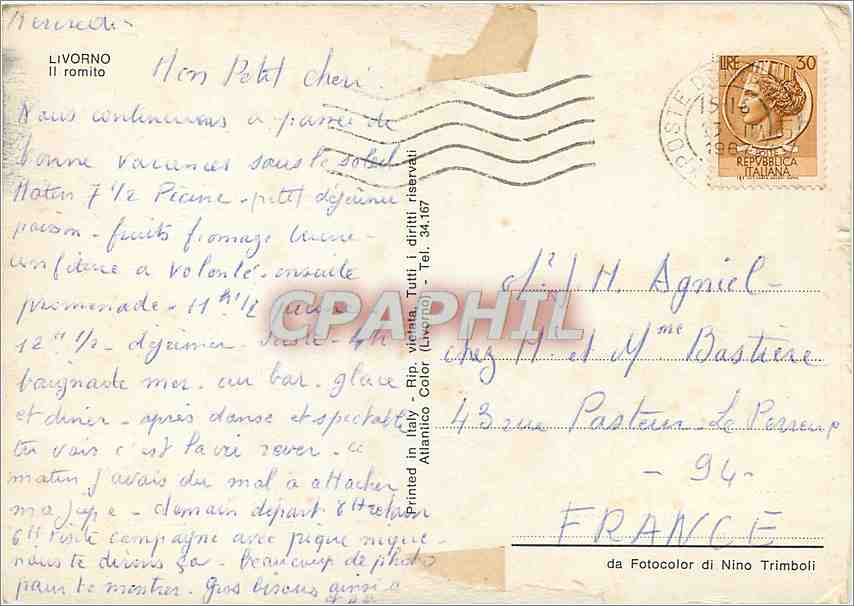 Mercredi -
LIVORNO
Il romito
Mon Petit cheri
Nous continuons a passer de
bonne vacances sous le soleil
Matin 7 1/2 Piscine - petit déjeuner
fruits fromage beurre -
confiture a volonté - ensuite
promenade - 11 h 1/2 piscine
12 h 1/2 - déjeuner - sieste - 4h
baignade mer - au bar - glace
et diner - après danse et spectacle
tu vois c'est la vie rever - ce
matin j'avais du mal à attacher
ma jupe - demain départ 8H retour
6H visite campagne avec pique nique -
nous te dirons ça - beaucoup de photo
pour te montrer - Gros bisous ainsi a
Printed in Italy - Rip. vietata. Tutti i diritti riservati
Atlantico Color (Livorno) - Tel. 34.167
LIRE 30
POSTE
REPVBBLICA
ITALIANA
POSTE
15-16
196
J H. Agniel -
chez Mr et Mme Bastière
43 rue Pasteur - Le Perreux
- 94 -
FRANCE
da Fotocolor di Nino Trimboli
CPAPHIL